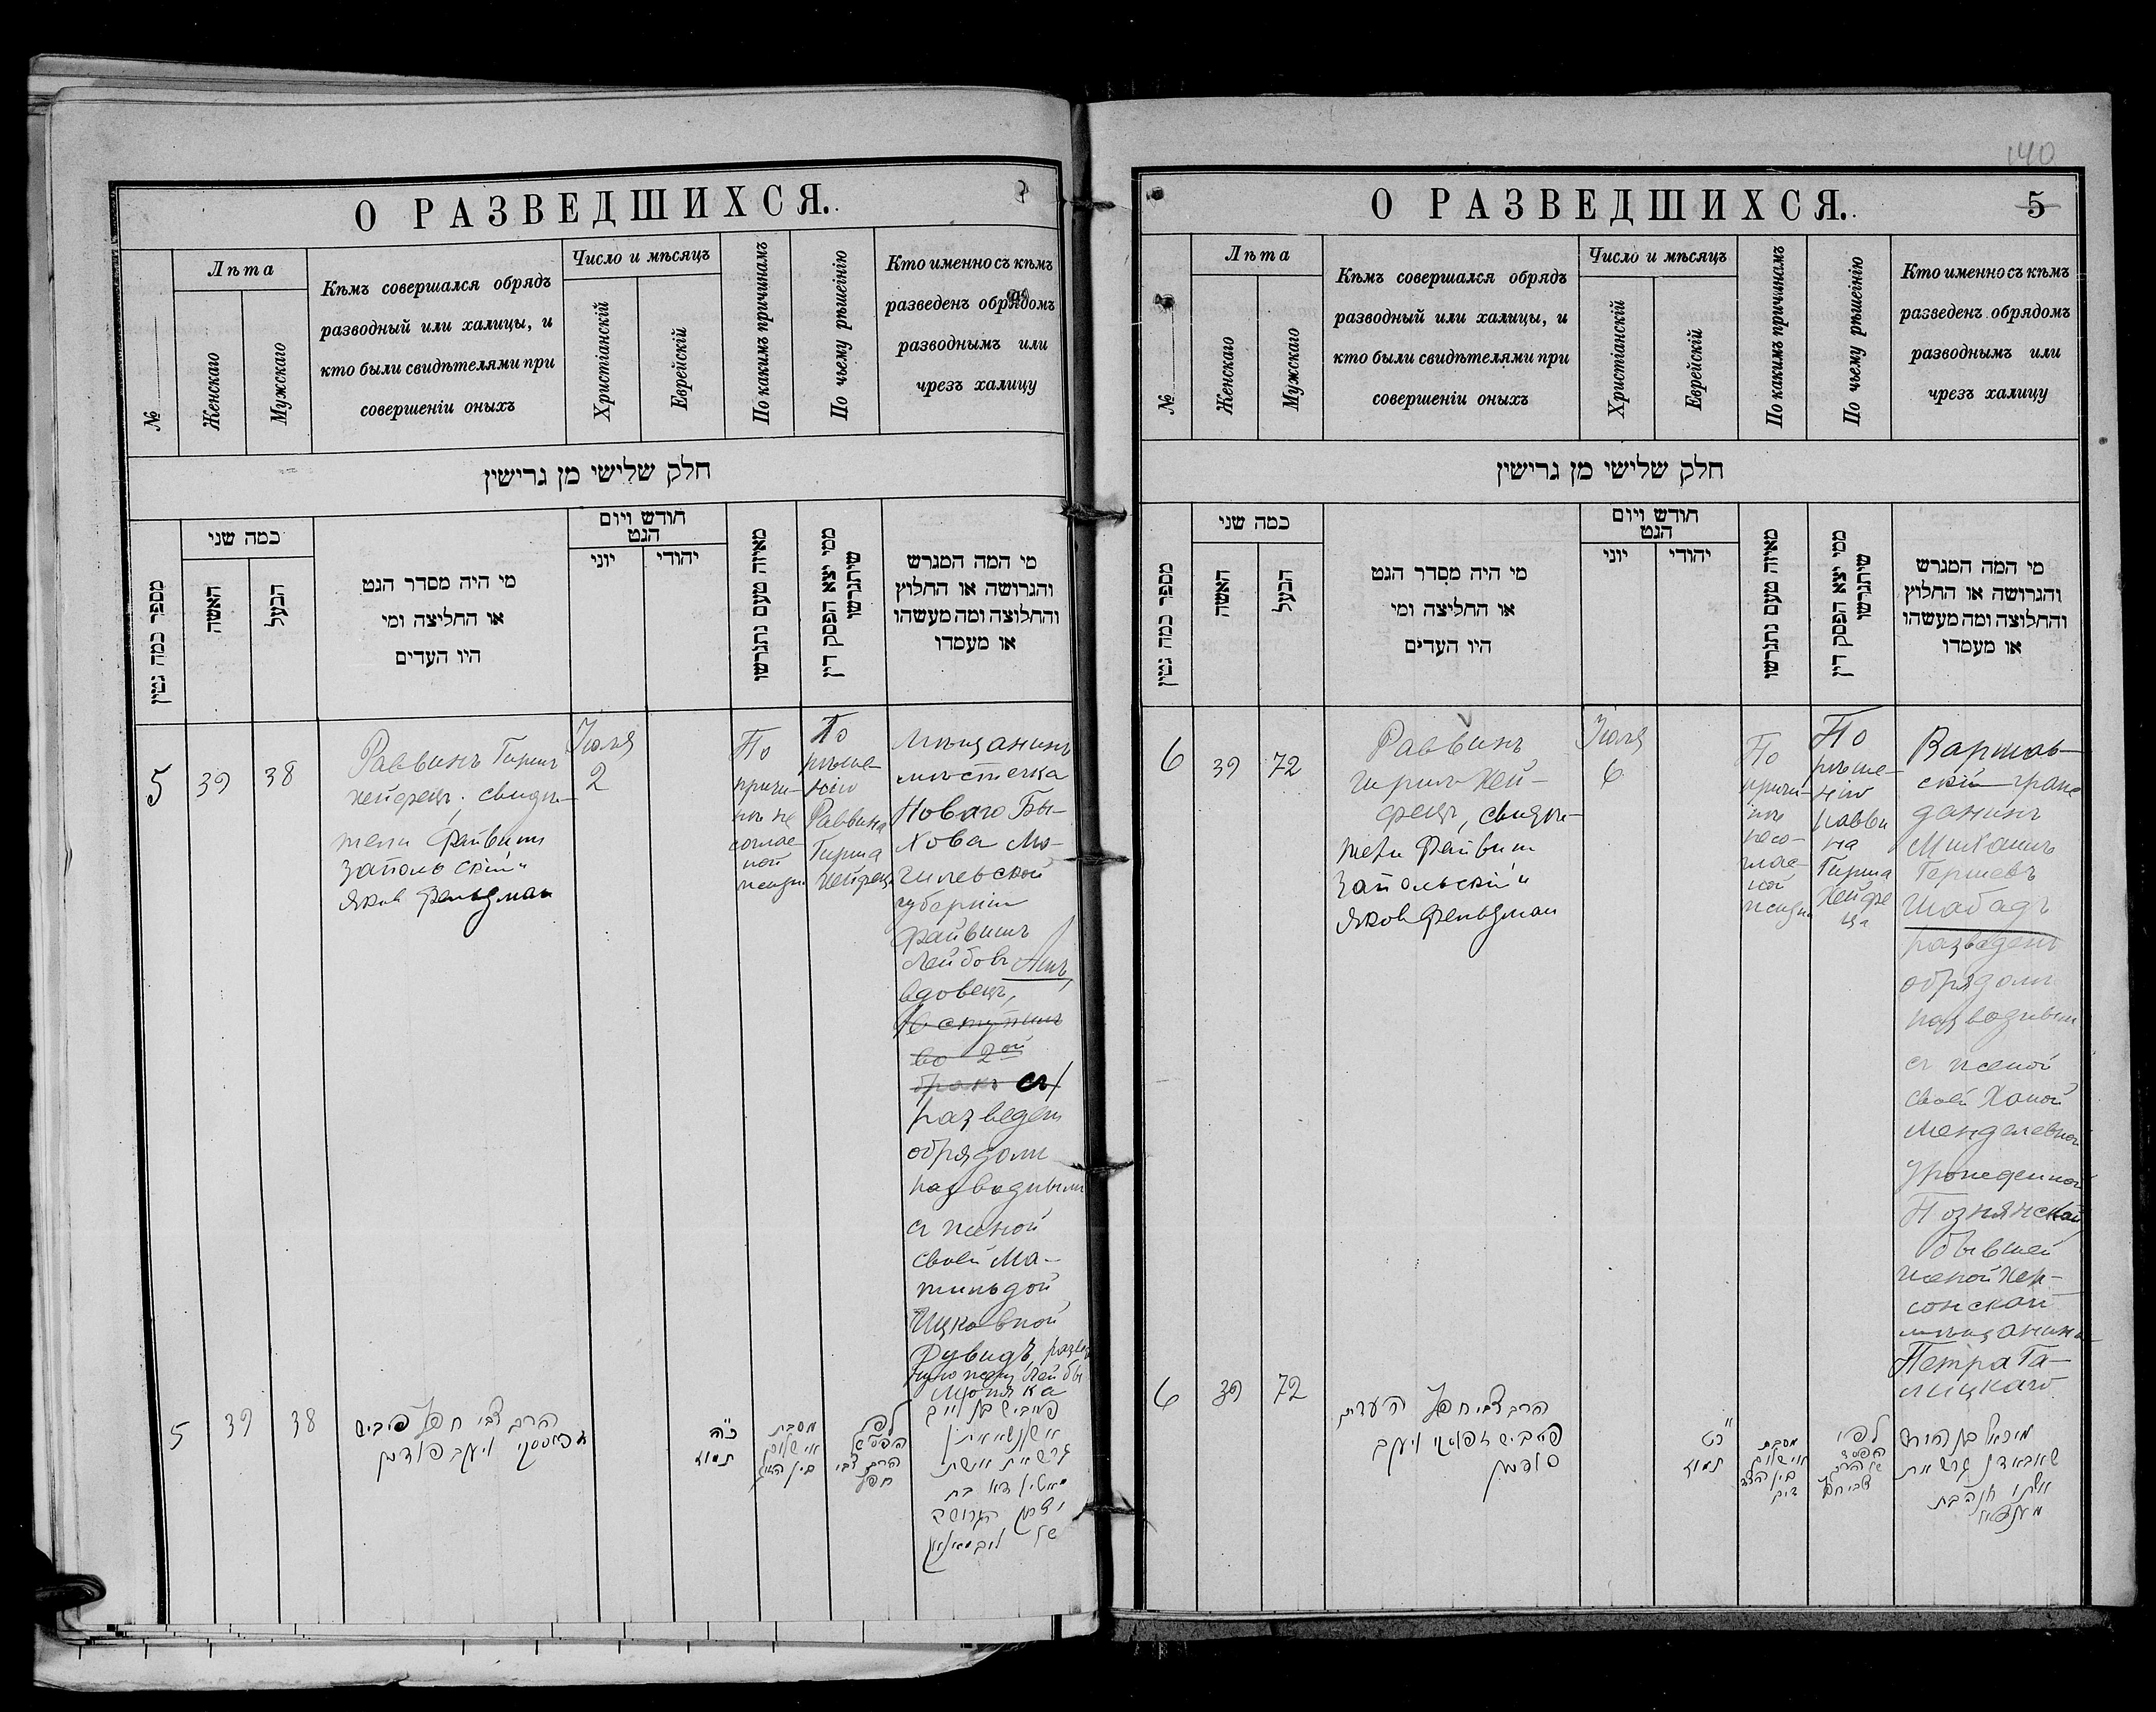 О РАЗВЕДШИХСЯ.
№
Лѣта
Женскаго
Мужскаго
Кѣмъ совершался обрядъ
разводный или халицы, и
кто были свидѣтелями при
совершеніи оныхъ
Число и мѣсяцъ
Христіанскій
Еврейскій
По какимъ причинамъ
По чьему рѣшенію
Кто именно съ кѣмъ
разведенъ обрядомъ
разводнымъ или
чрезъ халицу
חלק שלישי מן גרישין
מספר כמה גטין
כמה שני
האשה
הבעל
מי היה מסדר הגט
או החליצה ומי
היו העדים
חודש ויום
הגט
יוני
יהודי
מאיזה טעם נתגרשו
ממי יצא הפסק דין
שיתגרשו
מי המה המגרש
והגרושה או החלוץ
והחלוצה ומה מעשהו
או מעמדו
5
39
38
Раввинъ Гиршъ
Хейфецъ, свидѣ-
тели Файвишъ
Запольскій и
Яковъ Фельдман
Іюля
2
По
причи-
нѣ не
соглас-
ной
жизни
По
рѣше-
нію
Раввина
Гирша
Хейфеца
Мѣщанинъ
мѣстечка
Новаго Бы-
хова Мо-
гилевской
губерніи
Файвишъ
Лейбовъ
вдовецъ,
вступилъ
во 2ой
бракъ съ
разведен
обрядомъ
разводнымъ
съ женой
своей Ма-
тильдой
Ицковной
Рувидъ,
5
39
38
הרב צבי חפץ פייביש
זאפאלסקי ויעקב פעלדמן
כ"ה
תמוז
מסבת
אי שלום
לפי
הפסק של
הרב צבי
חפץ
О РАЗВЕДШИХСЯ.
140
5
№
Лѣта
Женскаго
Мужскаго
Кѣмъ совершался обрядъ
разводный или халицы, и
кто были свидѣтелями при
совершеніи оныхъ
Число и мѣсяцъ
Христіанскій
Еврейскій
По какимъ причинамъ
По чьему рѣшенію
Кто именно съ кѣмъ
разведенъ обрядомъ
разводнымъ или
чрезъ халицу
חלק שלישי מן גרישין
מספר כמה גטין
כמה שני
האשה
הבעל
מי היה מסדר הגט
או החליצה ומי
היו העדים
חודש ויום
הגט
יוני
יהודי
מאיזה טעם נתגרשו
ממי יצא הפסק דין
שיתגרשו
מי המה המגרש
והגרושה או החלוץ
והחלוצה ומה מעשהו
או מעמדו
6
39
72
Раввинъ
Гиршъ Хей-
фецъ, свидѣ-
тели Файвиш
Запольскій и
Яковъ Фельдман
Іюля
6
По
причи-
нѣ
несо-
глас-
ной
жизни
По
рѣше-
нію
равви
на
Гирша
Хейфе
ца
Варшав-
скій граж
данинъ
Михаилъ
Гершевъ
Шабадъ
разведенъ
обрядомъ
разводнымъ
съ женой
своей Ханой
Менделевной
урожденной
Познянской
бывшей
женой Хер-
сонскаго
мѣщанина
Петра Га-
лицкаго
6
39
72
הרב צבי חפץ העדים
פייביש זאפאלסקי ויעקב
פעלדמן
כ"ט
תמוז
מסבת
אי שלום
בין הצד
דים
לפי
הפסק
של הרב
צבי חפץ